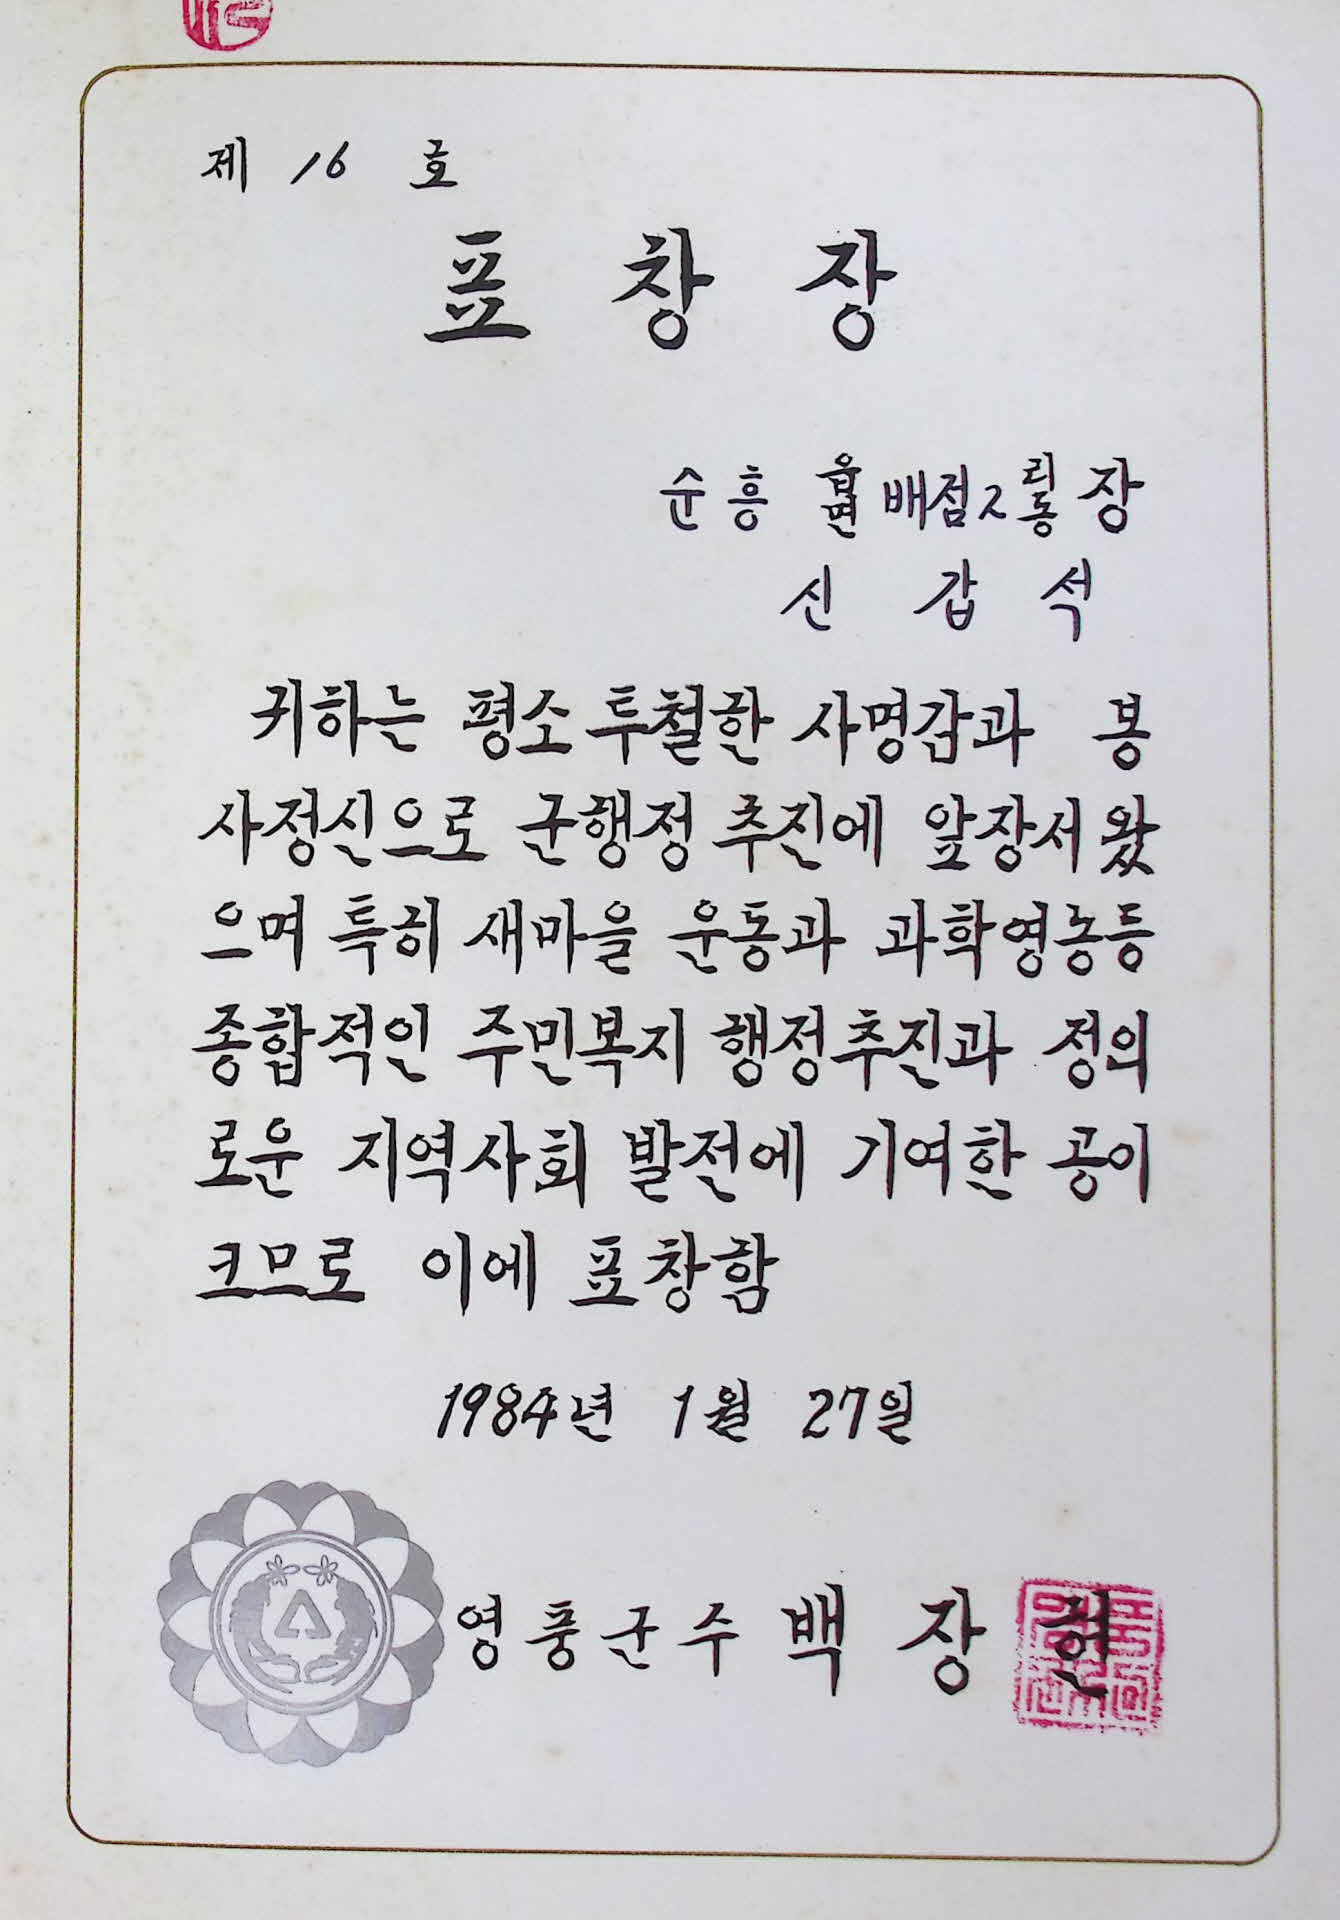 제 16 호
표 창 장
순흥 읍면 배점2 리동장
신 갑 석
귀하는 평소 투철한 사명감과 봉
사정신으로 군행정 추진에 앞장서 왔
으며 특히 새마을 운동과 과학영농등
종합적인 주민복지 행정추진과 정의
로운 지역사회 발전에 기여한 공이
크므로 이에 표창함
1984년 1월 27일
영풍군수 백 장 현